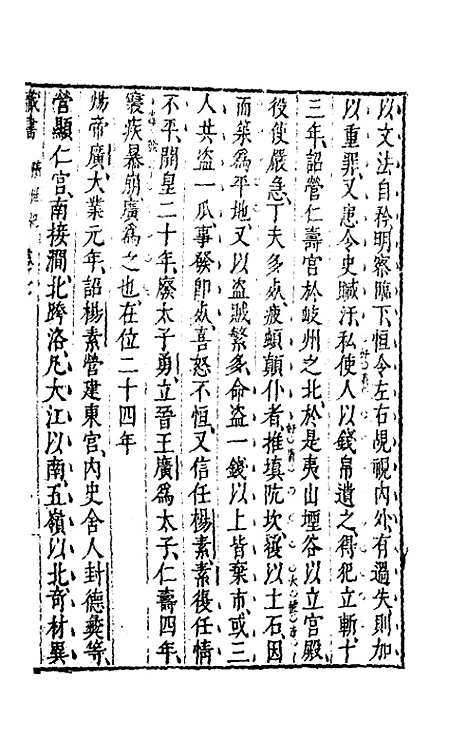 以文法自矜明察臨下恒令左右覘視內外有過失則加
以重罪又患令史贓汙私使人以錢帛遺之得犯立斬十
三年詔營仁壽宮於岐州之北於是夷山堙谷以立宮殿
役使嚴急丁夫多死疲頓顛仆者推填阬坎覆以土石因
而築為平地又以盜賊繁多命盜一錢以上皆棄市或三
人共盜一瓜事發即死喜怒不恒又信任楊素素復任情
不平開皇二十年廢太子勇立晉王廣為太子仁壽四年
寢疾暴崩廣為之也在位二十四年
煬帝廣大業元年詔楊素營建東宮內史舍人封德彝等
營顯仁宮南接澗北跨洛凡大江以南五嶺以北奇材異
藏書